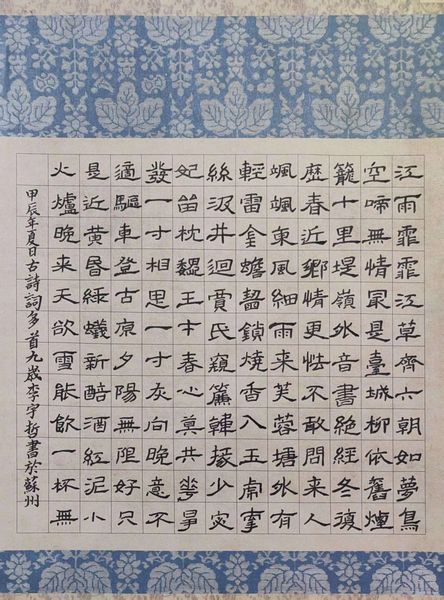 江雨霏霏江草齊六朝如夢鳥
空啼無情最是臺城柳依舊煙
籠十里堤嶺外音書絕經冬復
歷春近鄉情更怯不敢問來人
颯颯東風細雨來芙蓉塘外有
輕雷金蟾齧鎖燒香入玉虎牽
絲汲井迴賈氏窺簾韓掾少宓
妃留枕魏王才春心莫共華爭
發一寸相思一寸灰向晚意不
適驅車登古原夕陽無限好只
是近黃昏綠蟻新醅酒紅泥小
火爐晚來天欲雪能飲一杯無
甲辰年夏日古詩詞多首九歲李宇哲書於蘇州